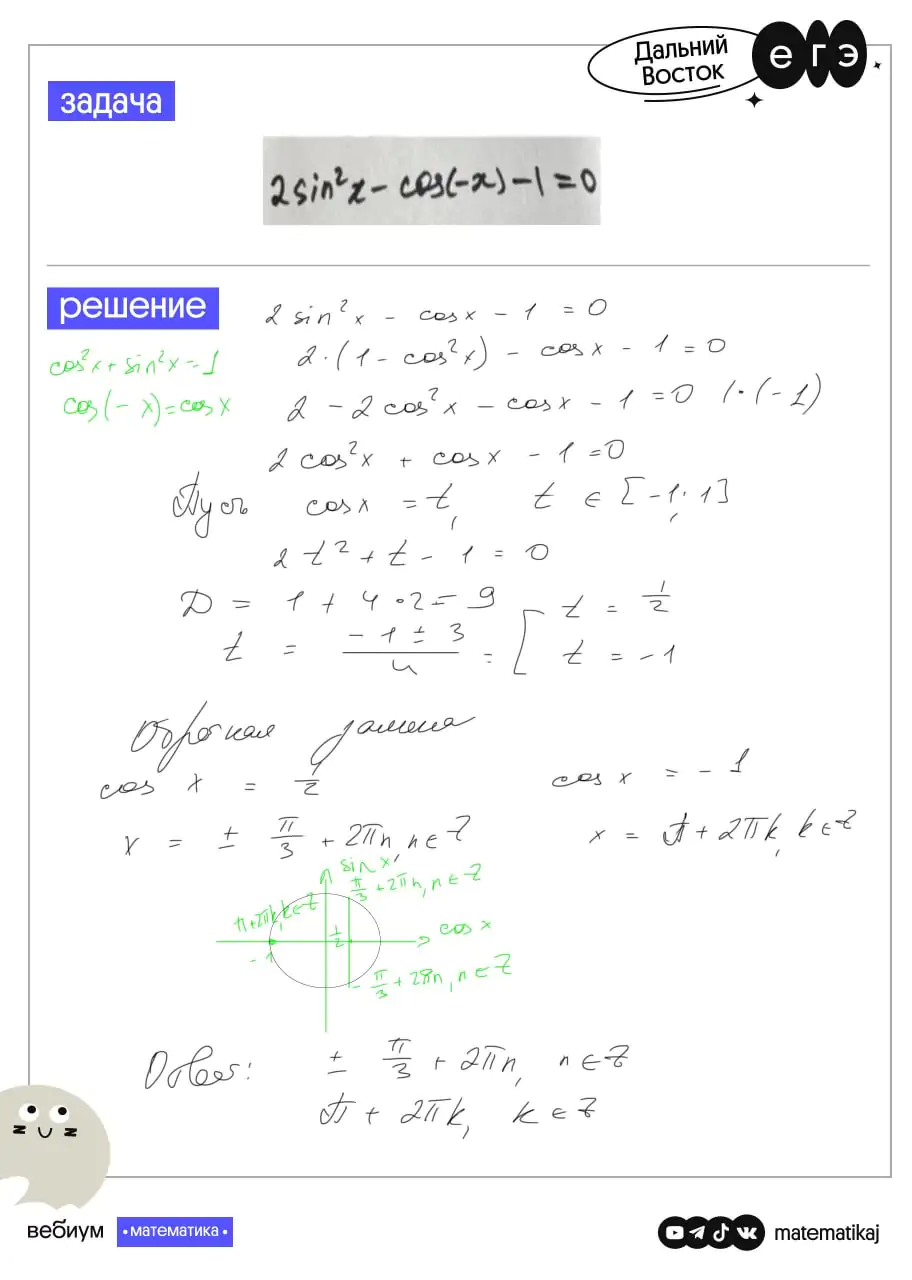 Дальний
Восток
егэ
задача
2sin²x - cos(-x) - 1 = 0
решение
2 sin²x - cosx - 1 = 0
cos²x + sin²x = 1
2·(1 - cos²x) - cosx - 1 = 0
cos(-x) = cosx
2 - 2cos²x - cosx - 1 = 0 |·(-1)
2cos²x + cosx - 1 = 0
Пусть cosx = t, t ∈ [-1; 1]
2t² + t - 1 = 0
D = 1 + 4·2 = 9
t = (-1 ± 3)/4 = [ t = 1/2
t = -1
Обратная замена
cos x = 1/2
cos x = -1
x = ± π/3 + 2πn, n ∈ Z
x = π + 2πk, k ∈ Z
sin x
π/3 + 2πn, n ∈ Z
π + 2πk, k ∈ Z
cos x
1/2
-1
-π/3 + 2πn, n ∈ Z
Ответ: ± π/3 + 2πn, n ∈ Z
π + 2πk, k ∈ Z
вебиум
• математика •
matematikaj